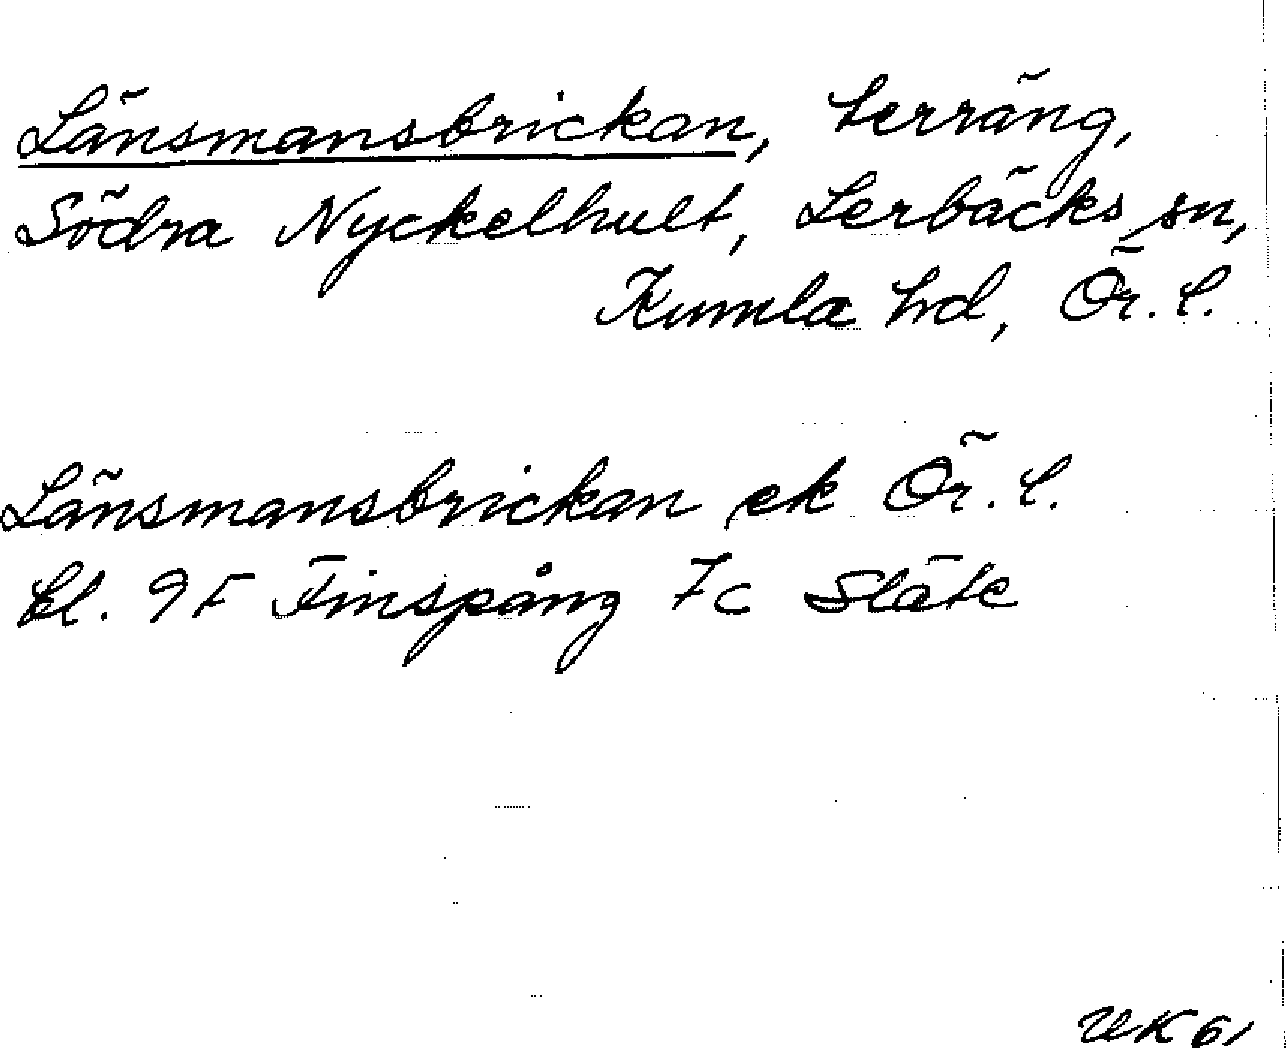 Länsmansbrickan, terräng,
Södra Nyckelhult, Lerbäcks sn,
Kumla hd, Ör. l.
Länsmansbrickan ek Ör. l.
bl. 9F Finspång 7c Släte
UK 61